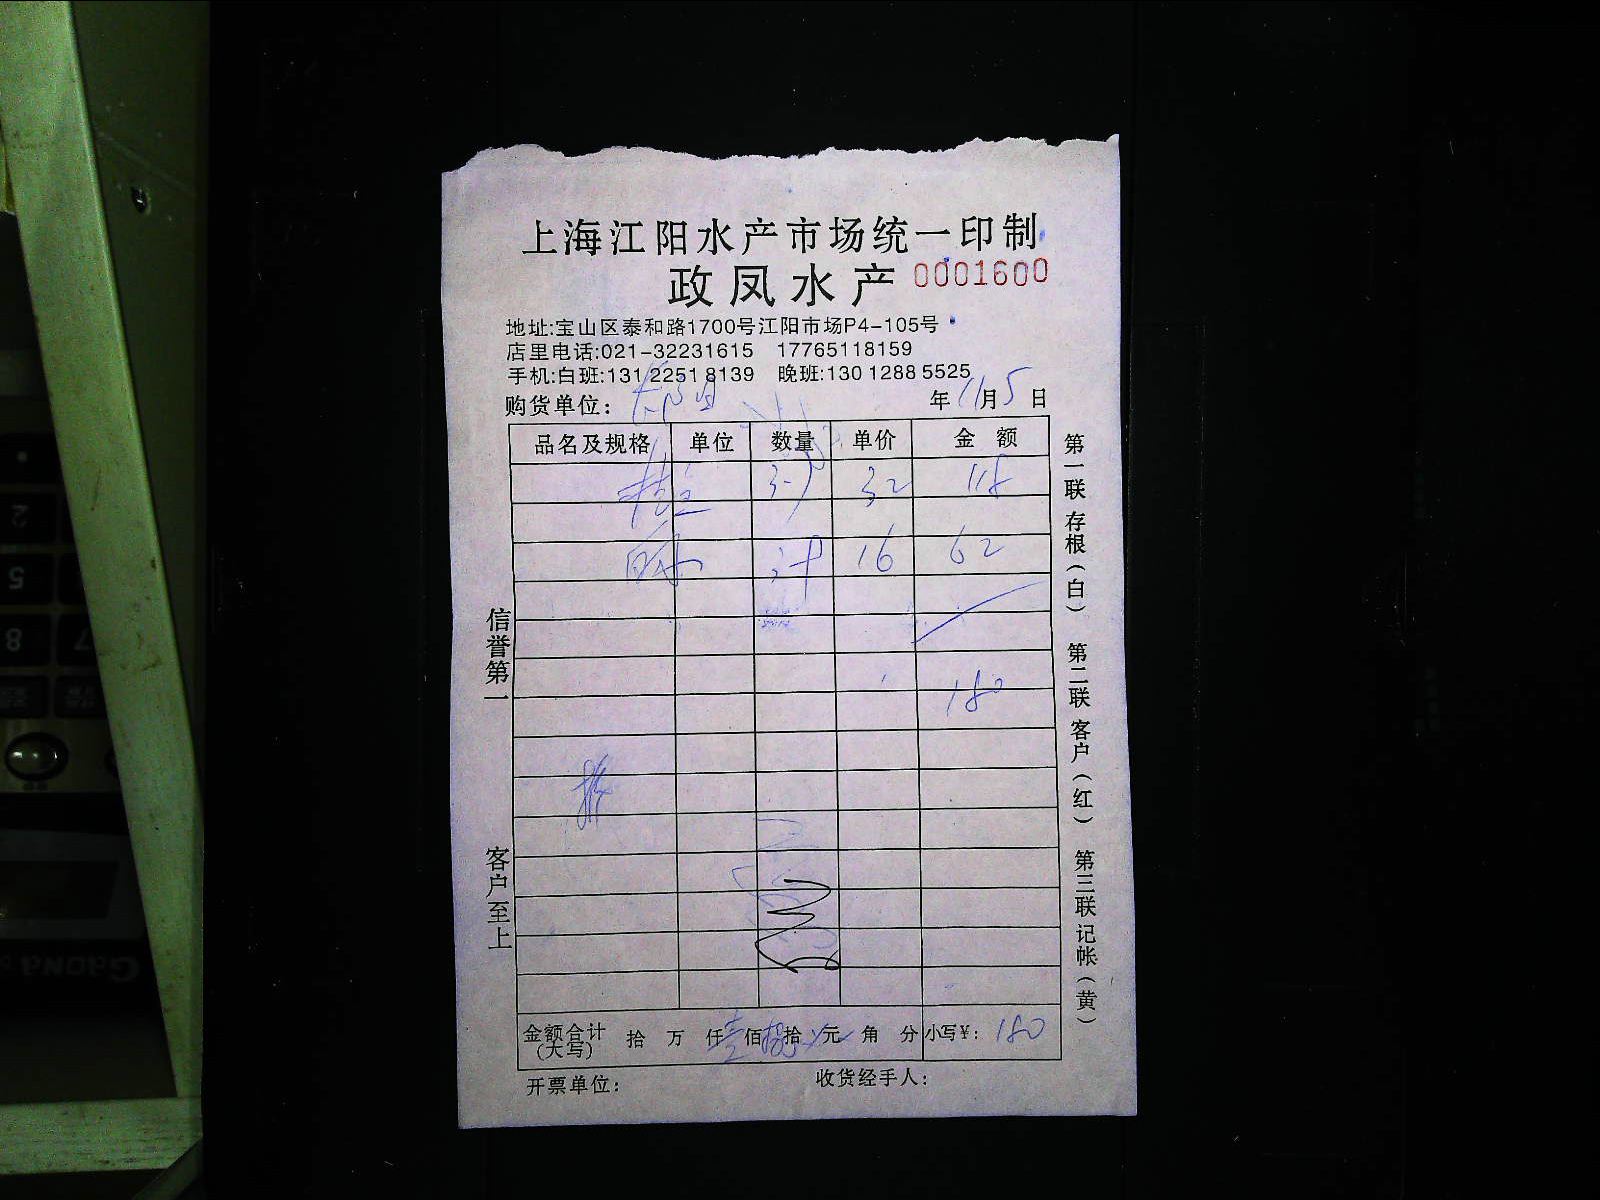 上海江阳水产市场统一印制
政凤水产 0001600
地址:宝山区泰和路1700号江阳市场P4-105号
店里电话:021-32231615 17765118159
手机:白班:131 2251 8139 晚班:130 1288 5525
购货单位: 年 11月 5 日
品名及规格 单位 数量 单价 金额
32 118
16 62
180
金额合计(大写) 拾 万 仟壹佰捌拾 元 角 分 小写¥: 180
开票单位: 收货经手人:
信誉第一 客户至上
第一联存根(白) 第二联客户(红) 第三联记帐(黄)
2
5
8
7
Gaona